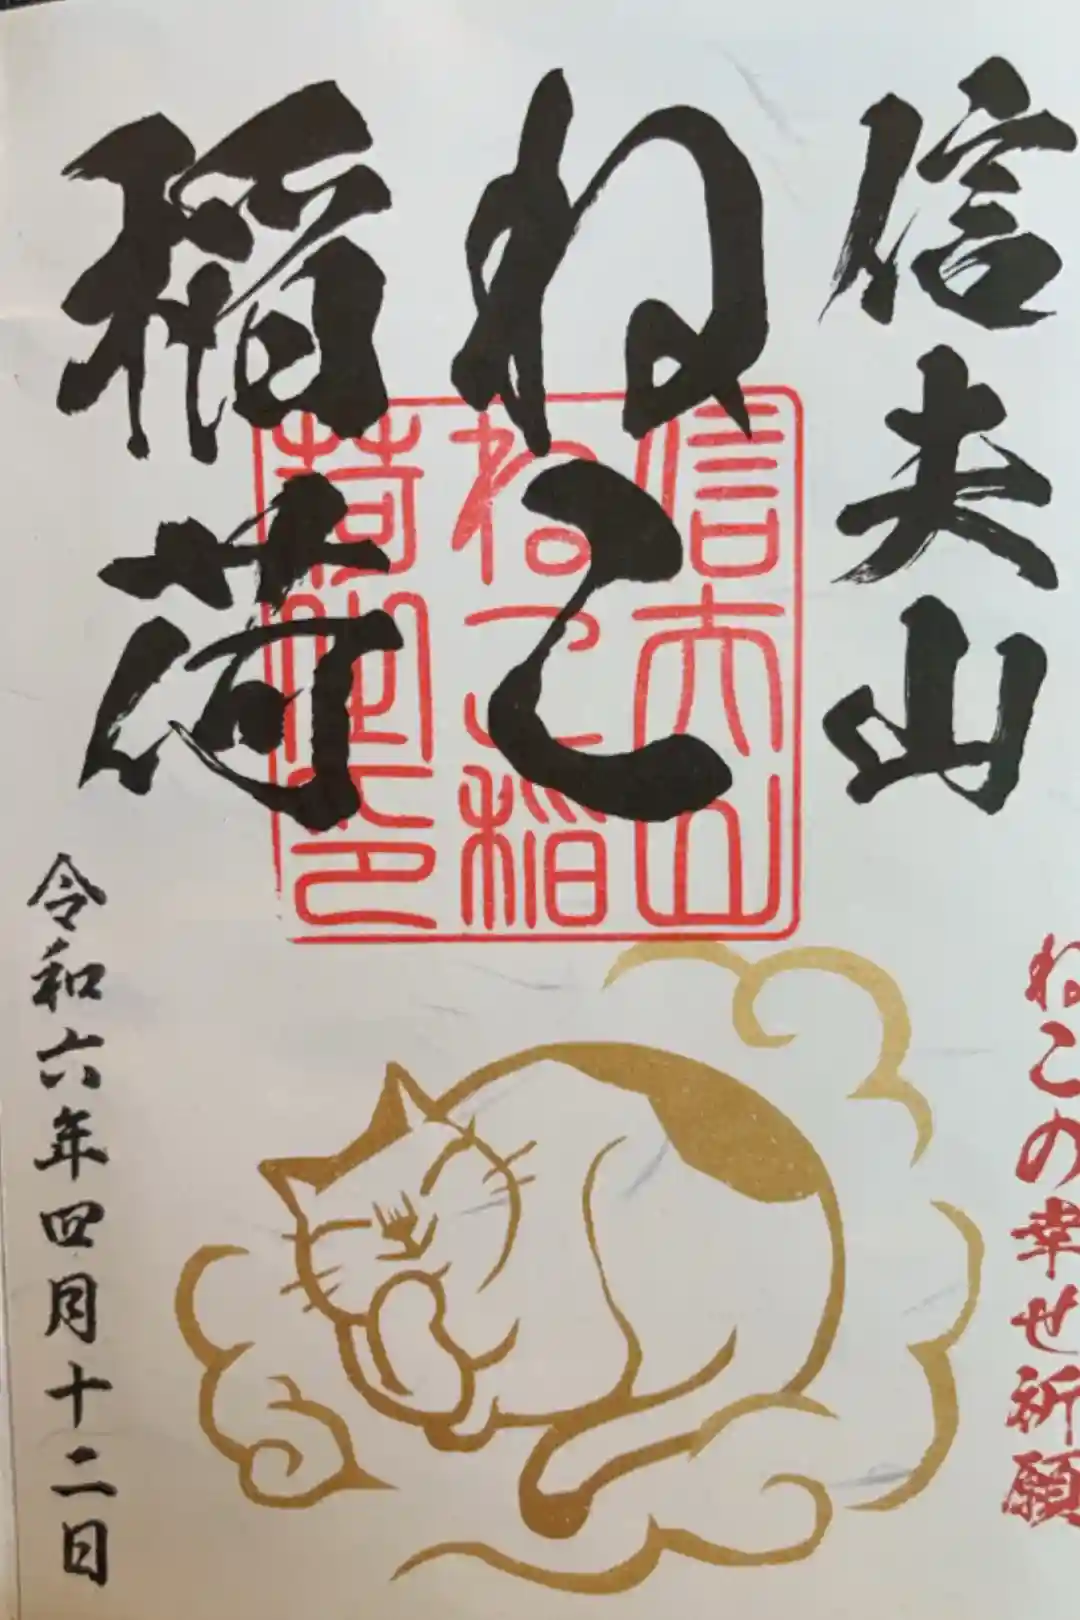 信夫山
ねこ
稲荷
信夫山
ねこ稲
荷御印
ねこの幸せ祈願
令和六年四月十二日